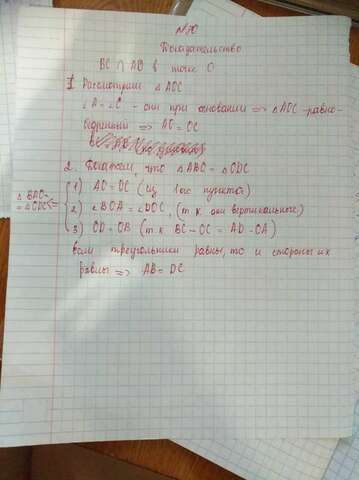 №80
Доказательство
BC ∩ AD в точке O
1 Рассмотрим △ AOC
∠A = ∠C - они при основании => △ AOC - равно-
бедренный => AO = OC
2. Докажем, что △ ABO = △ ODC
△ BAO = △ ODC <= { 1) AO = OC (из 1ого пункта)
2) ∠ BOA = ∠ DOC, (т к они вертикальные)
3) OD = OB (т к BC - OC = AD - OA)
если треугольники равны, то и стороны их
равны => AB = DC